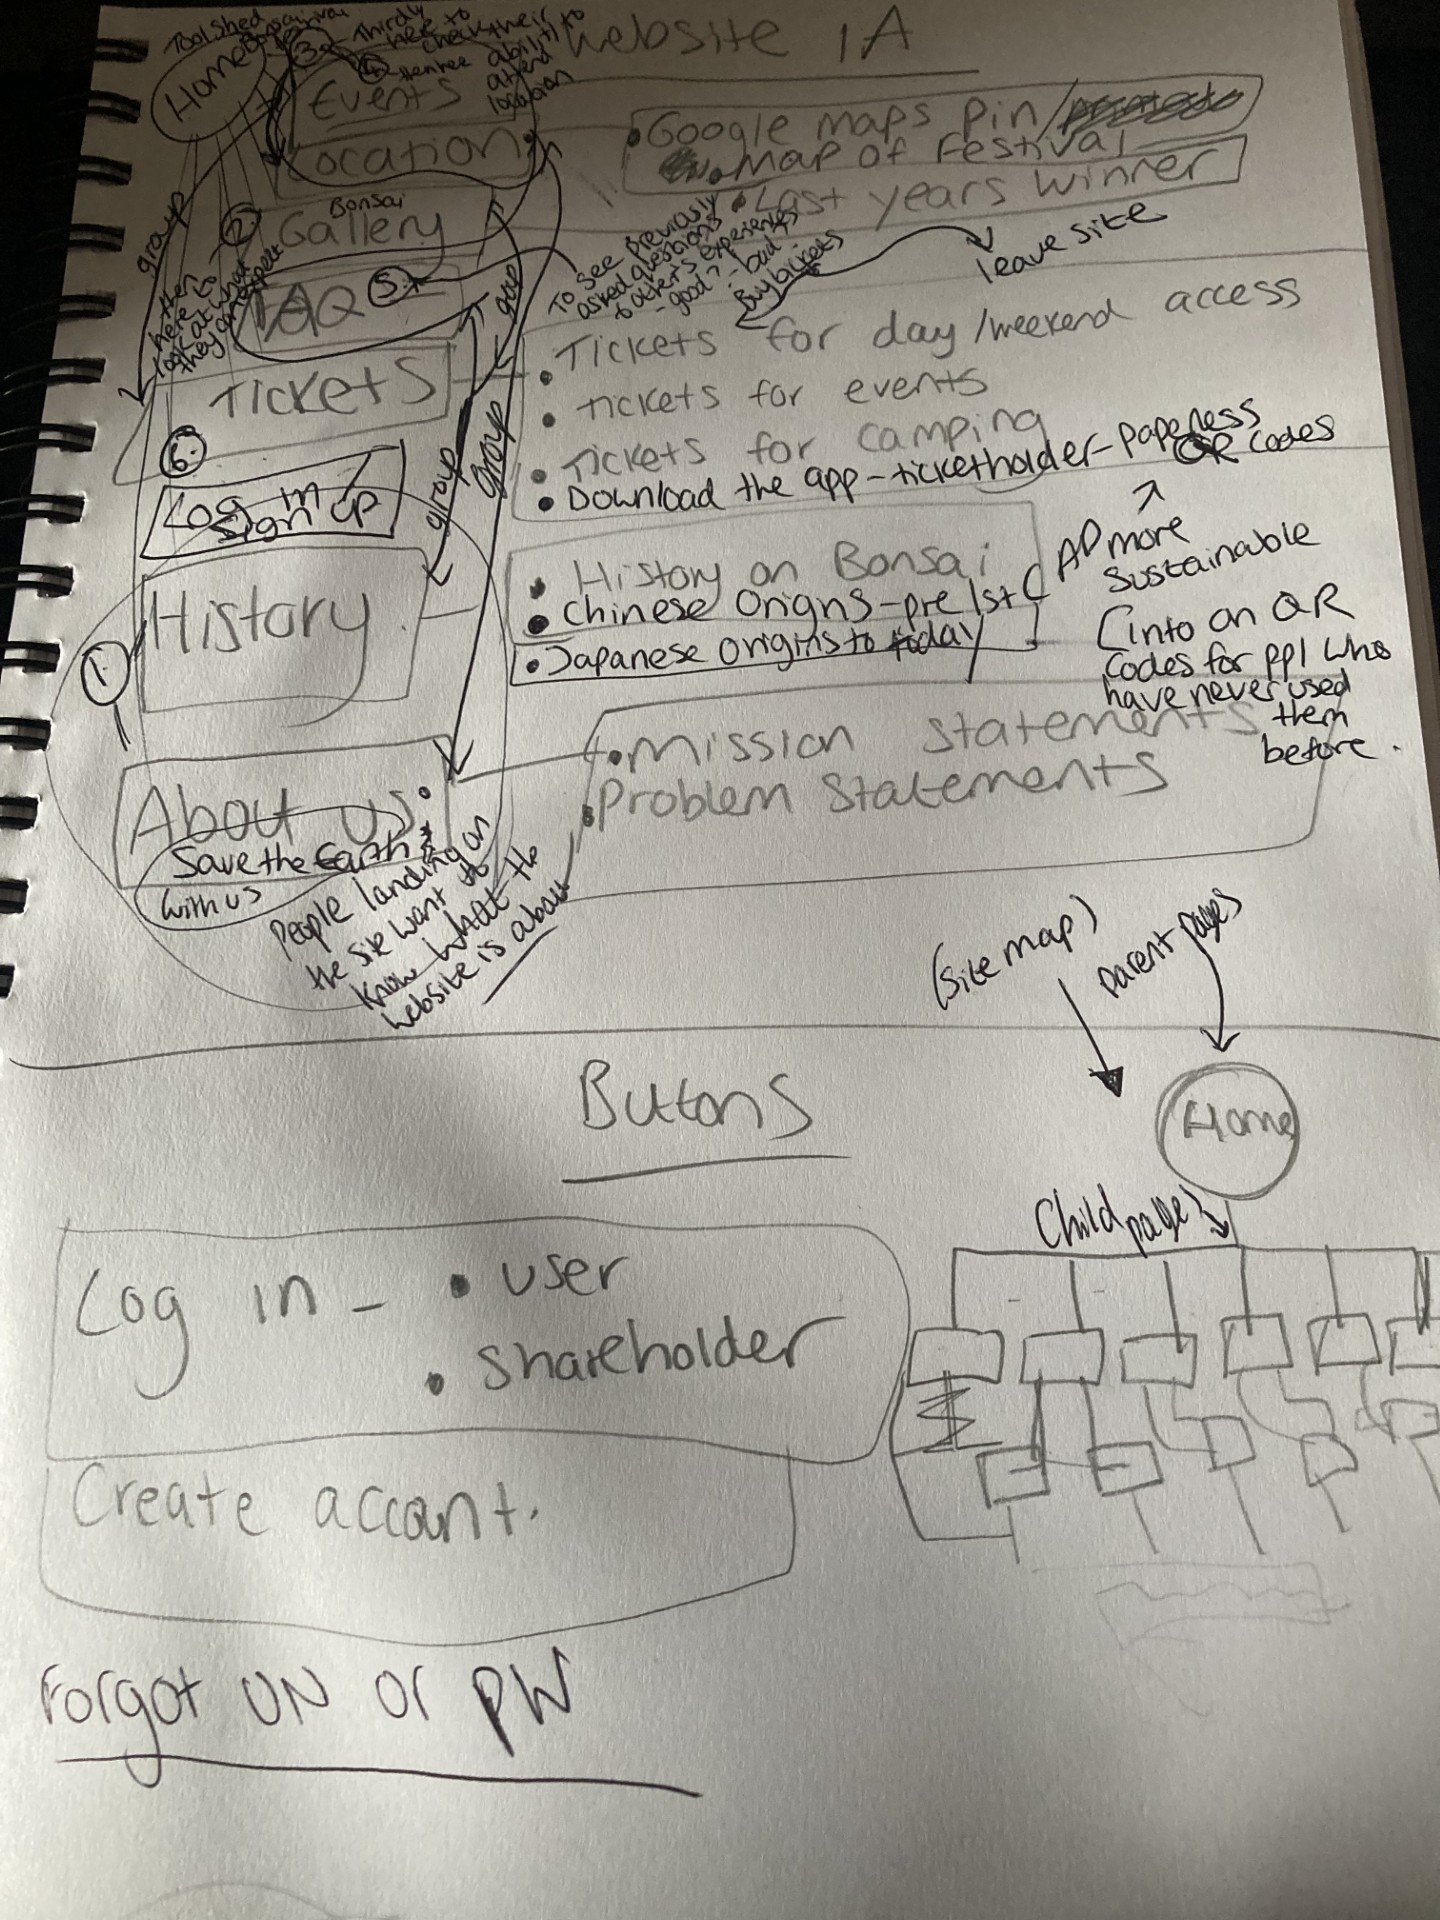 Website IA
Toolshed
Bonsai
Home
③ Thirdly
here to
check their
ability to
attend
④
Events
Location
location
• Google maps pin /
• Map of Festival
• Last years winner
group
② Bonsai
Gallery
then
here to
look at what
they
FAQ ⑤
group
To see previously
asked questions
& other's experiences
- good? - bad?
Buy tickets
leave site
Tickets
• Tickets for day/weekend access
• Tickets for events
• Tickets for camping
• Download the app - ticketholder - paperless
QR codes
⑥
Log in /
Sign up
group
group
more
sustainable
(into on QR
codes for ppl who
have never used
them
before.
①
History
• History on Bonsai
• Chinese Origins - pre 1st C AD
• Japanese Origins to today
About us
• Mission statements
• Problem statements
Save the Earth
with us
People landing on
the site want to
know what the
website is about
(site map)
parent pages
Buttons
Home
Child pages
Log in - • user
• shareholder
Create account.
Forgot UN or PW